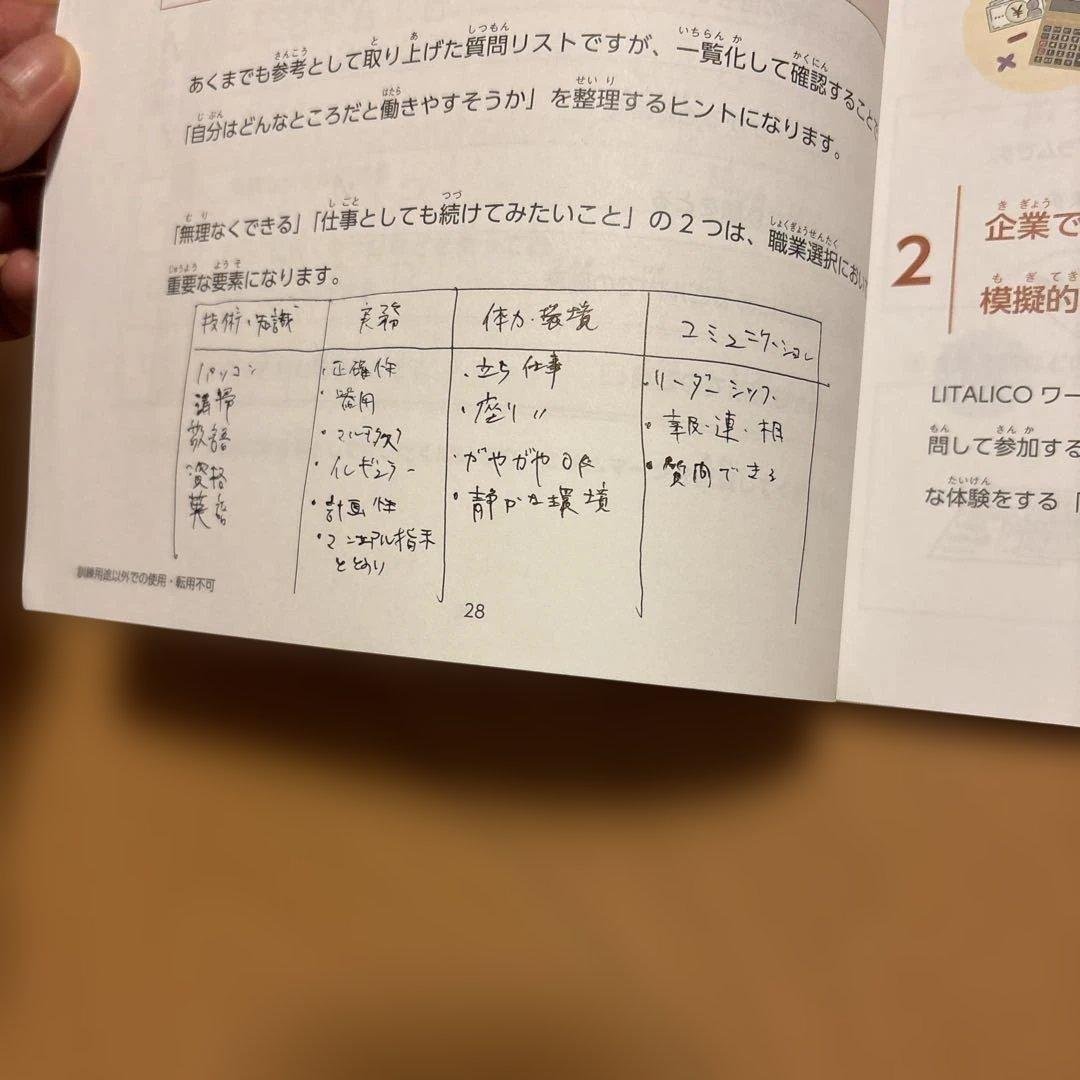 あくまでも参考として取り上げた質問リストですが、一覧化して確認することで
「自分はどんなところだと働きやすそうか」を整理するヒントになります。
「無理なくできる」「仕事としても続けてみたいこと」の2つは、職業選択におい
重要な要素になります。
技術・知識
パソコン
清掃
敬語
資格
英語
実務
・正確性
・器用
・マルチタスク
・イレギュラー
・計画性
・マニュアル指示
とおり
体力・環境
・立ち仕事
・座り〃
・がやがやOK
・静かな環境
コミュニケーション
・リーダーシップ
・報・連・相
・質問できる
訓練用途以外での使用・転用不可
28
2
企業で
模擬的
LITALICO ワー
問して参加する
な体験をする「